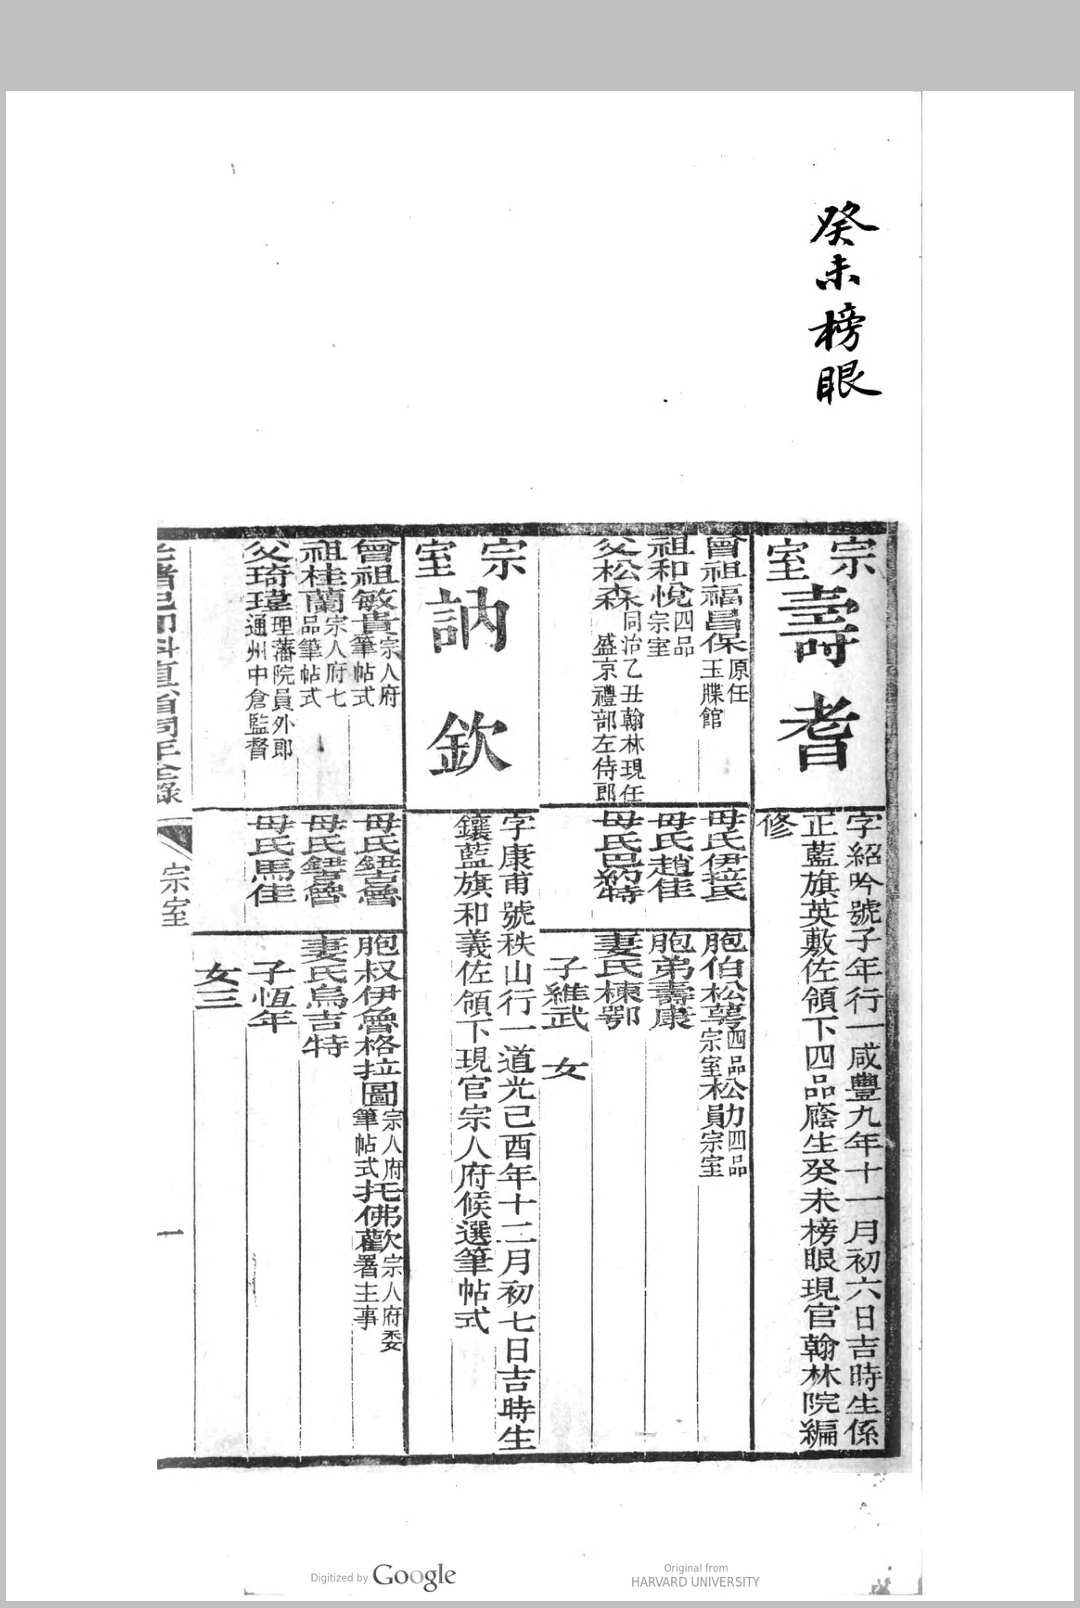 癸未榜眼
宗室
壽耆
字紹吟號子年行一咸豐九年十一月初六日吉時生係
正藍旗英敷佐領下四品廕生癸未榜眼現官翰林院編
修
曾祖福昌保原任玉牒館
母氏伊拉氏
胞伯松蕚四品宗室松勛四品員宗室
祖和悅四品宗室
母氏趙佳
胞弟壽康
父松森同治乙丑翰林現任盛京禮部左侍郎
母氏巴約特
妻氏棟鄂
子維武 女
宗室
訥欽
字康甫號秩山行一道光己酉年十二月初七日吉時生
鑲藍旗和義佐領下現官宗人府候選筆帖式
曾祖敏貴宗人府筆帖式
母氏鈕祜魯
胞叔伊魯格拉圖宗人府筆帖式托佛歡宗人府委署主事
祖桂蘭宗人府七品筆帖式
母氏鈕祜魯
妻氏烏吉特
父琦瑋理藩院員外郎通州中倉監督
母氏馬佳
子恆年
女三
宗室
一
Digitized by Google
Original from
HARVARD UNIVERSITY